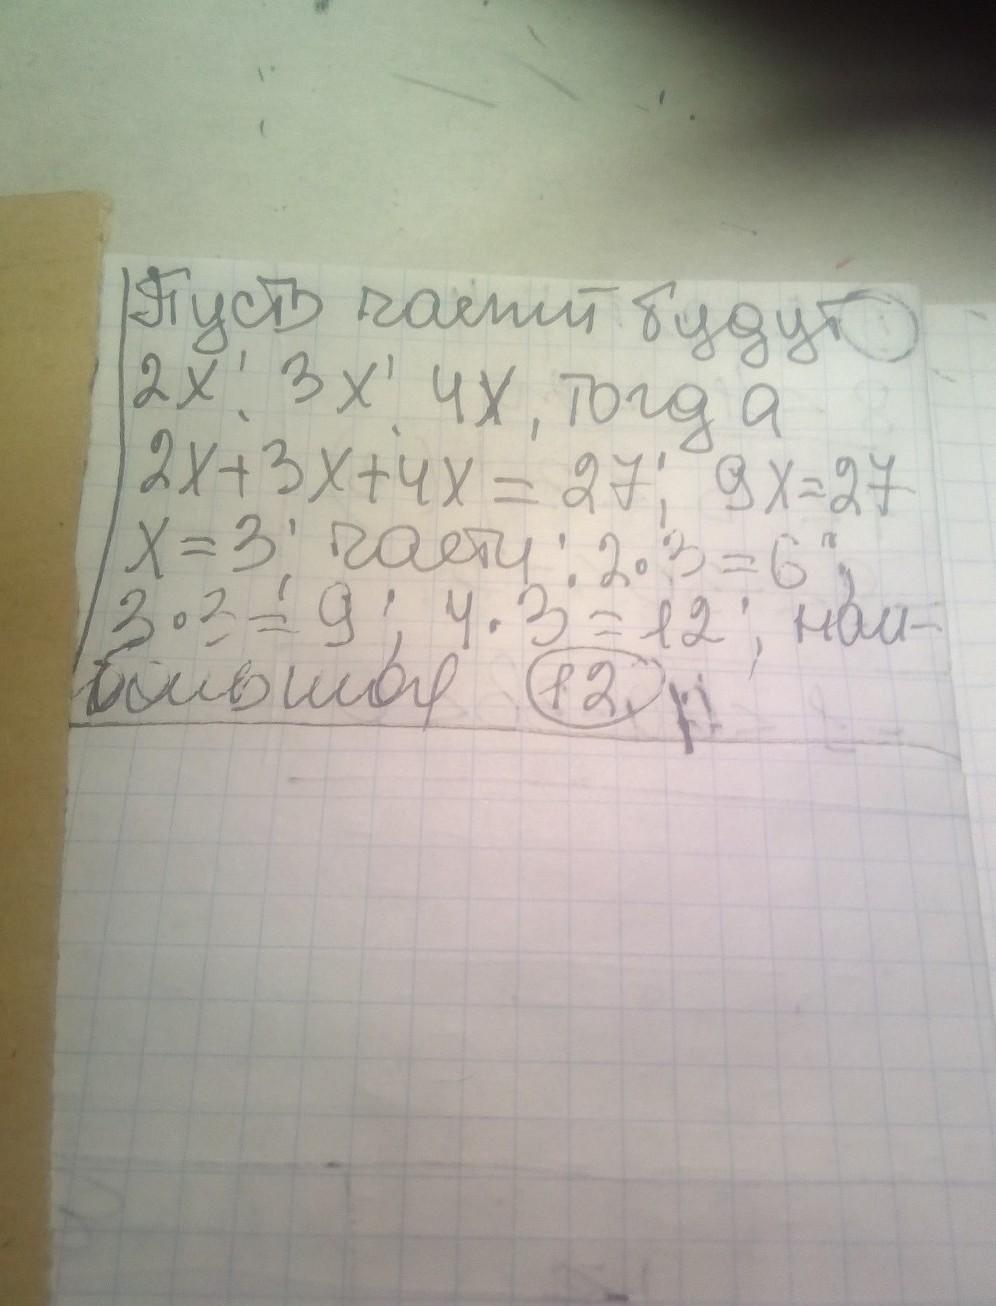 Пусть частий будут
2x; 3x; 4x, тогда
2x+3x+4x=27; 9x=27
x=3; части: 2·3=6;
3·3=9; 4·3=12; наи-
большая 12.